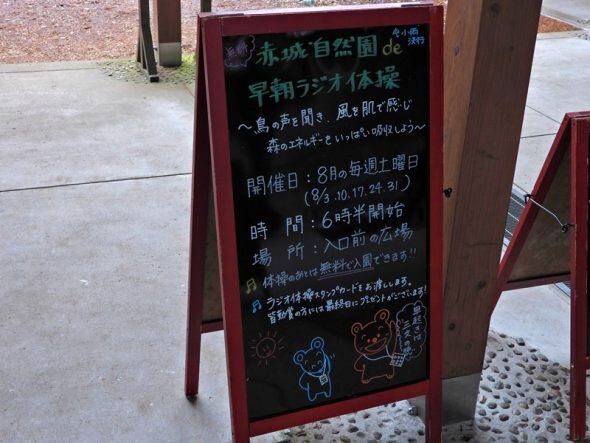 無料
赤城自然園de
小雨
決行
早朝ラジオ体操
～鳥の声を聞き、風を肌で感じ
森のエネルギーをいっぱい吸収しよう～
開催日：8月の毎週土曜日
(8/3.10.17.24.31)
時　間：6時半開始
場　所：入口前の広場
♫ 体操のあとは無料で入園できます!!
♫ ラジオ体操スタンプカードをお渡しします。
皆勤賞の方には最終日にプレゼントがございます!
早起きは
三文の徳